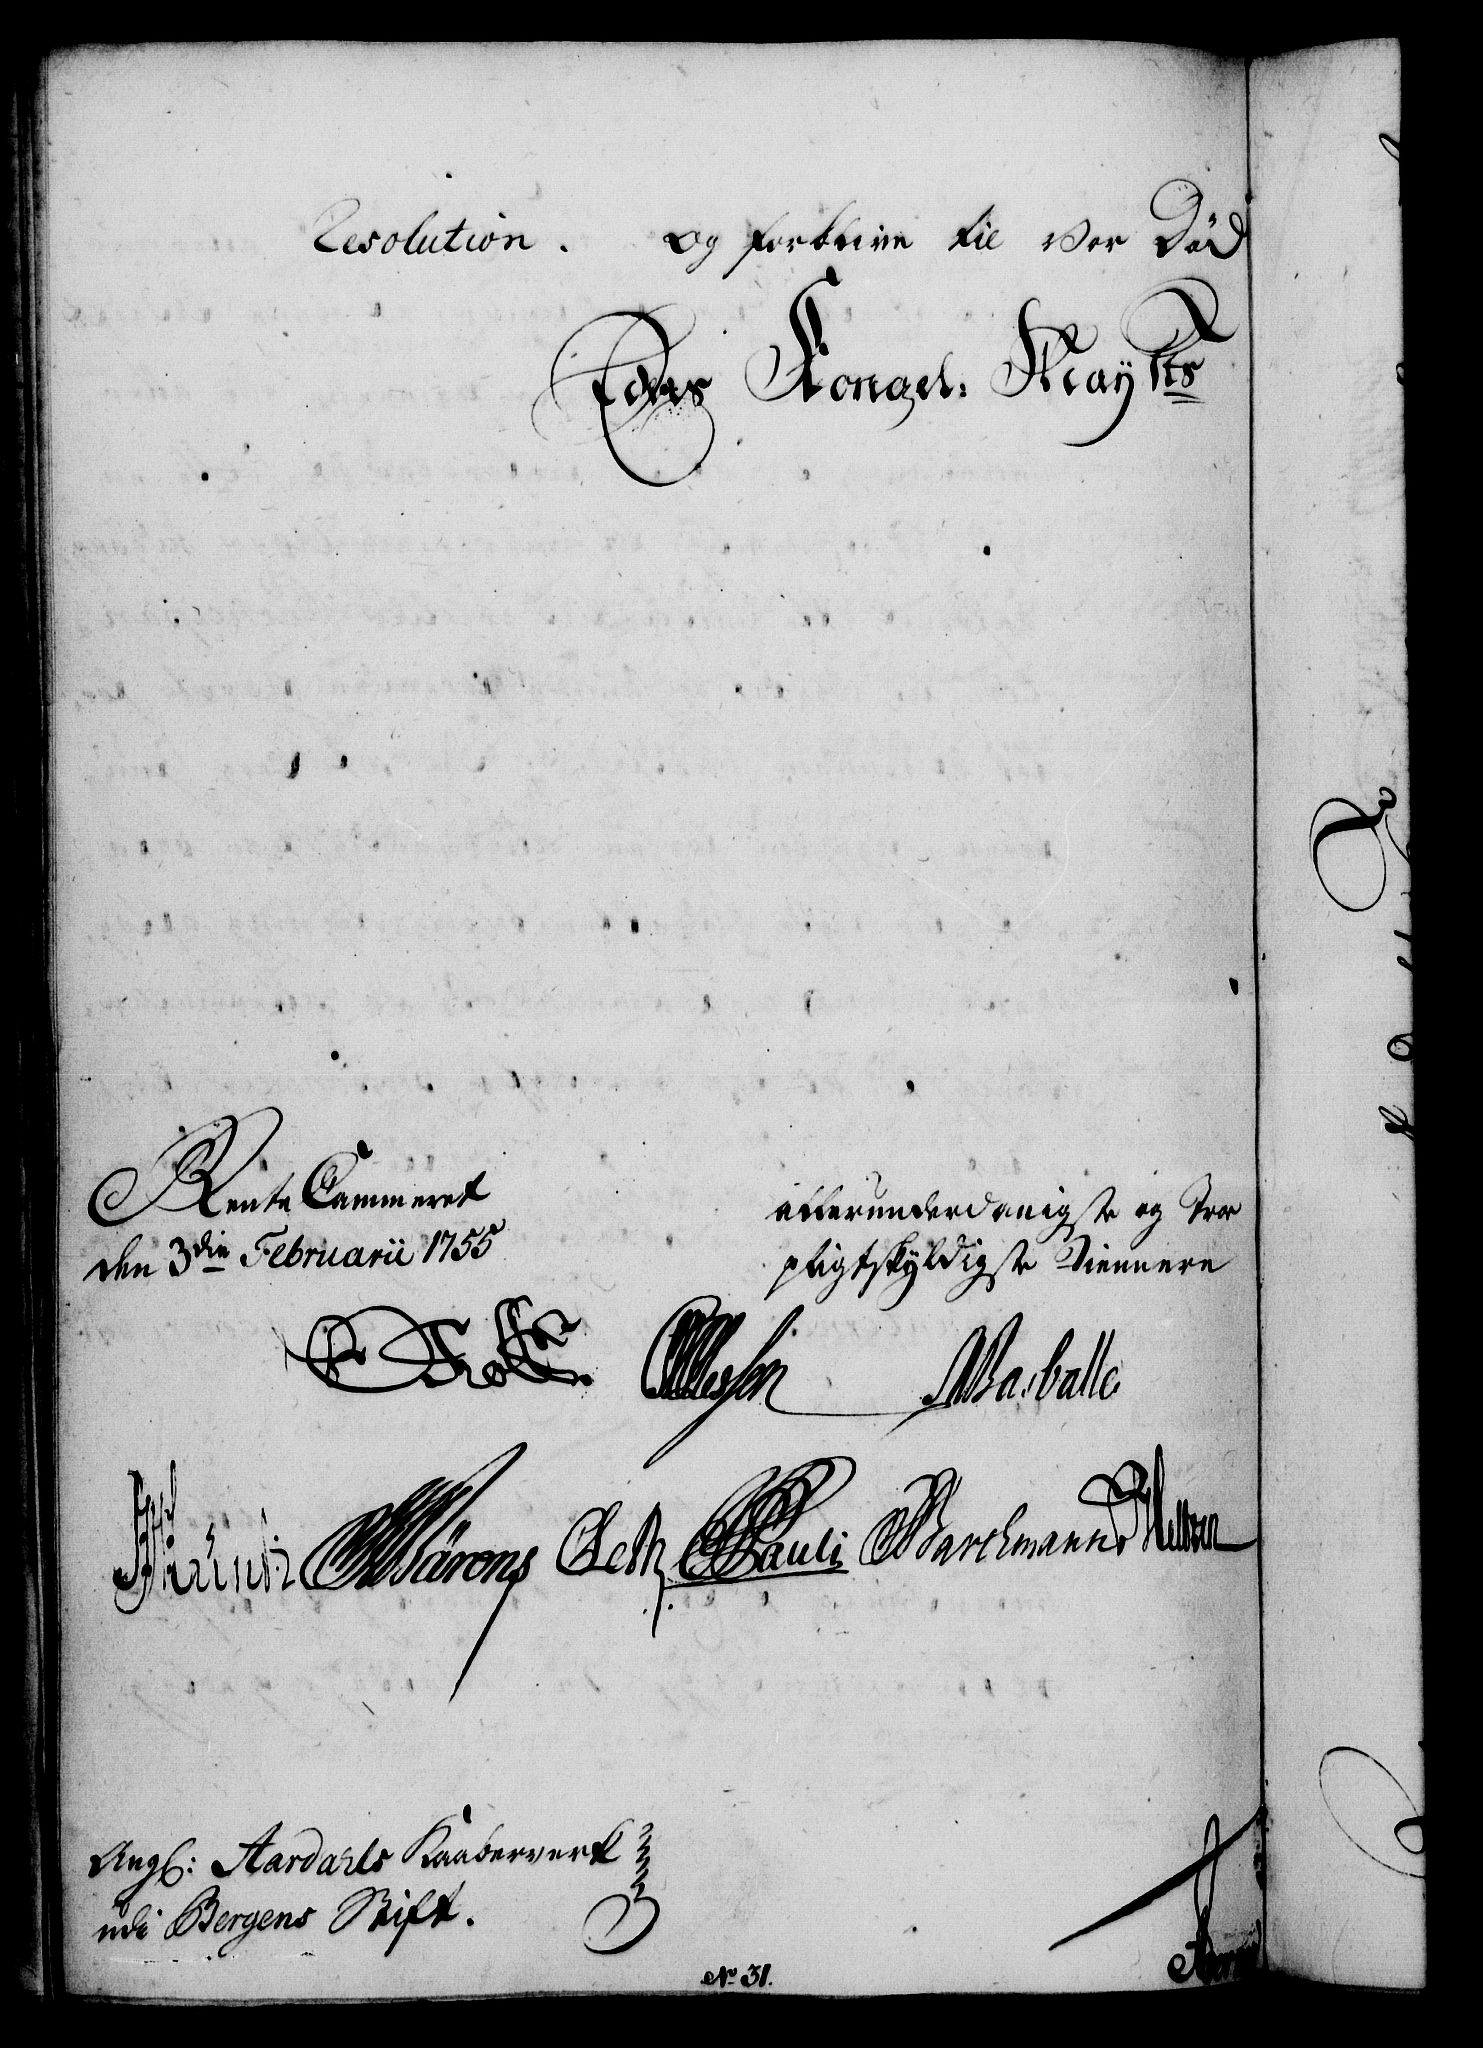 Resolution. og forblive til vor Død
Eders Kongel: Mayts
Rente Cammeret
den 3die Februarii 1755
allerunderdanigste og Troe
pligtskyldigste Tiennere
Masballe
Pauli Barchmann
Ang: Aardahls Kaaberverk
udi Bergens Stift.
No 31.